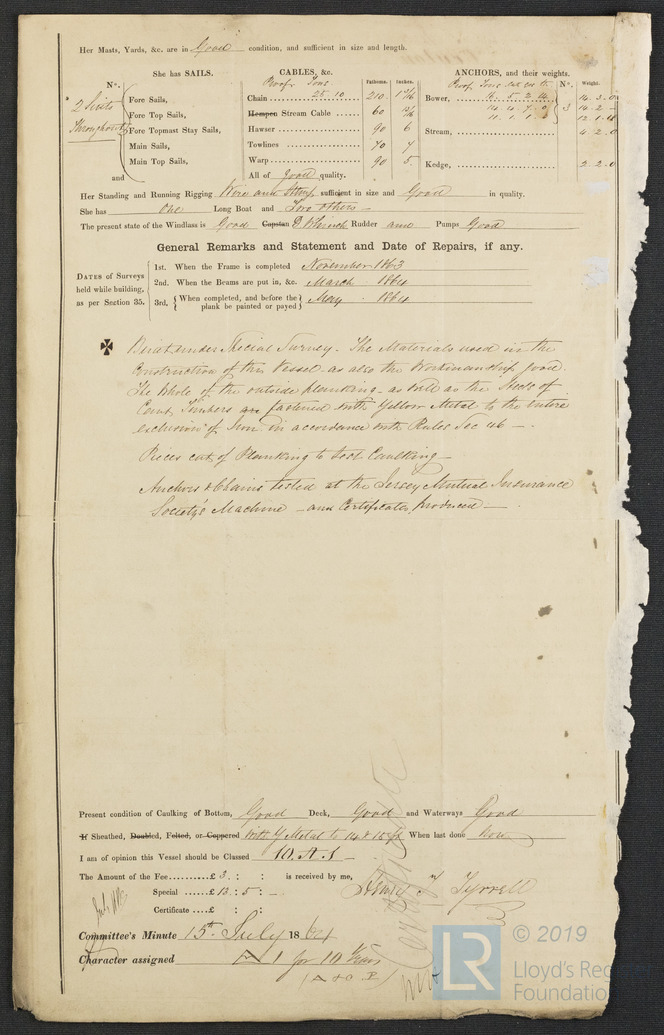 Her Masts, Yards, &c. are in Good condition, and sufficient in size and length.
She has SAILS.
CABLES, &c.
ANCHORS, and their weights.
Nº.
Proof Tons
Fathoms.
Inches.
Proof Tons
Nº.
Weight.
2 Suits
Throughout
Fore Sails,
Fore Top Sails,
Fore Topmast Stay Sails,
Main Sails,
Main Top Sails,
and
Chain 25.10 210
Hempen Stream Cable 60
Hawser 90 6
Towlines 70 7
Warp 90 5
All of good quality.
Bower, 3
Stream, 4 2 0
Kedge, 2 2 0
Her Standing and Running Rigging Wire and Hemp sufficient in size and Good in quality.
She has One Long Boat and Two others
The present state of the Windlass is Good Capstan & Winch Rudder and Pumps Good
General Remarks and Statement and Date of Repairs, if any.
DATES of Surveys held while building, as per Section 35.
1st. When the Frame is completed November 1863
2nd. When the Beams are put in, &c. March 1864
3rd, When completed, and before the plank be painted or payed May 1864
Built under Special Survey. The Materials used in the
Construction of this Vessel as also the Workmanship good.
The whole of the outside planking as well as the Heels of
Cant Timbers are fastened with Yellow Metal to the entire
exclusion of Iron in accordance with Rules Sec 46
Pieces cut of Planking to test Caulking
Anchors & Chains tested at the Jersey Mutual Insurance
Society's Machine and Certificates produced
Present condition of Caulking of Bottom, Good Deck, Good and Waterways Good
If Sheathed, Doubled, Felted, or Coppered With Y Metal to 14 & 15 ft When last done Now
I am of opinion this Vessel should be Classed 10. A. 1
The Amount of the Fee £ 3 : : is received by me,
Special £ 13 : 5 : —
Certificate £ : :
Tyrrell
Committee's Minute 15th July 1864
Character assigned A 1 for 10 Years
© 2019
LR
Lloyd's Re
Foundatio